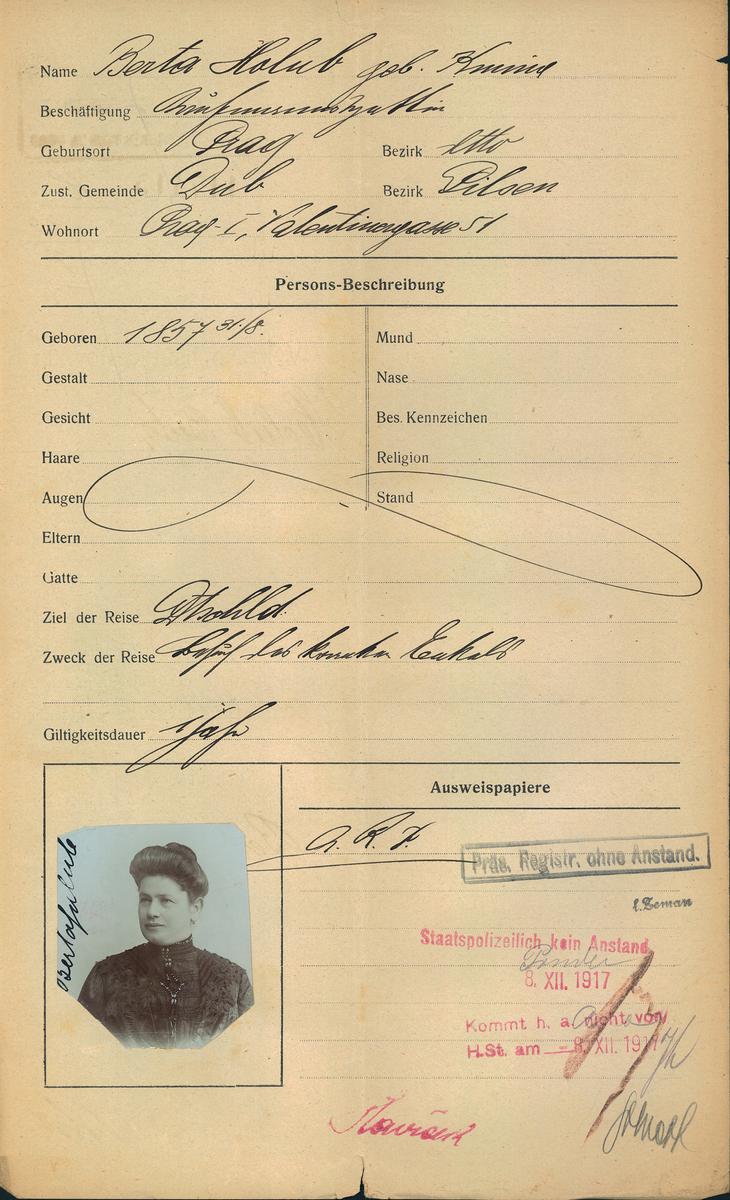 Name Berta Holub geb.
Beschäftigung
Geburtsort Prag Bezirk dtto
Zust. Gemeinde Dub Bezirk Pilsen
Wohnort Prag-I, Valentinergasse 51
Persons-Beschreibung
Geboren 1857 31./8. Mund
Gestalt Nase
Gesicht Bes. Kennzeichen
Haare Religion
Augen Stand
Eltern
Gatte
Ziel der Reise Dtschld.
Zweck der Reise Besuch des kranken Enkels
Giltigkeitsdauer 1 Jahr
Ausweispapiere
Präs. Registr. ohne Anstand.
Zeman
Staatspolizeilich kein Anstand
8. XII. 1917
Kommt h. a. nicht vor
H.St. am 8. XII. 1917